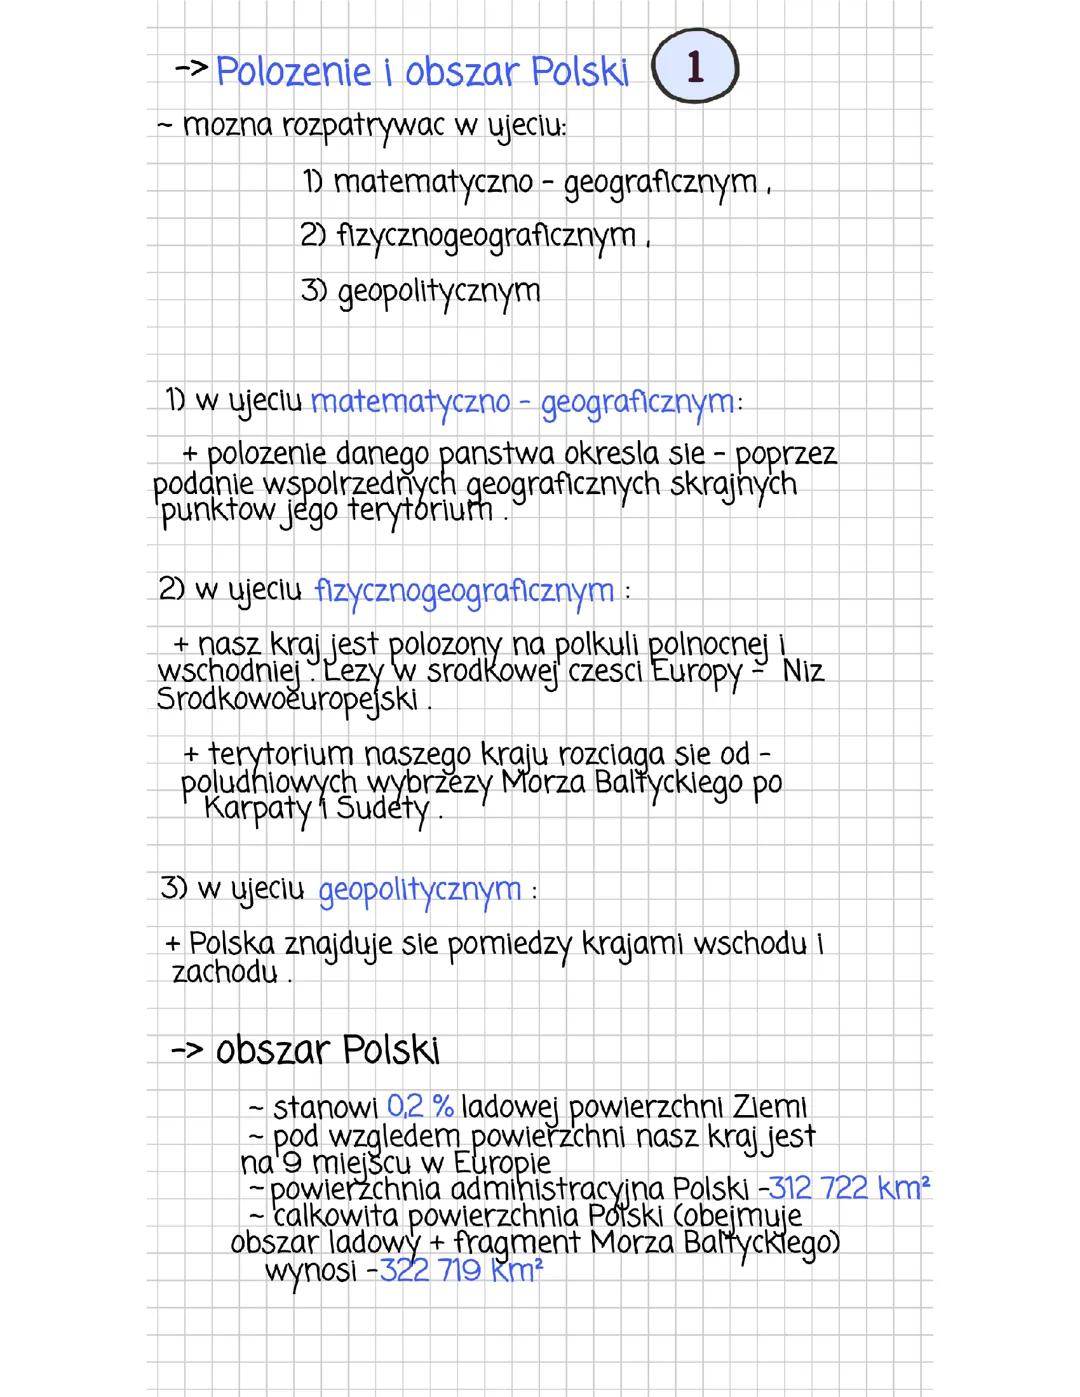 -> Polozenie i obszar Polski 1
~ mozna rozpatrywac w ujeciu:
1) matematyczno - geograficznym,
2) fizycznogeograficznym,
3) geopolitycznym
1) w ujeciu matematyczno - geograficznym:
+ polozenie danego panstwa okresla sie - poprzez
podanie wspolrzednych geograficznych skrajnych
punktow jego terytorium.
2) w ujeciu fizycznogeograficznym :
+ nasz kraj jest polozony na polkuli polnocnej i
wschodniej. Lezy w srodkowej czesci Europy - Niz
Srodkowoeuropejski.
+ terytorium naszego kraju rozciaga sie od -
poludniowych wybrzezy Morza Baltyckiego po
Karpaty i Sudety.
3) w ujeciu geopolitycznym :
+ Polska znajduje sie pomiedzy krajami wschodu i
zachodu.
-> obszar Polski
~ stanowi 0,2 % ladowej powierzchni Ziemi
~ pod wzgledem powierzchni nasz kraj jest
na 9 miejscu w Europie
~ powierzchnia administracyjna Polski -312 722 km²
~ calkowita powierzchnia Polski (obejmuje
obszar ladowy + fragment Morza Baltyckiego)
wynosi -322 719 km²